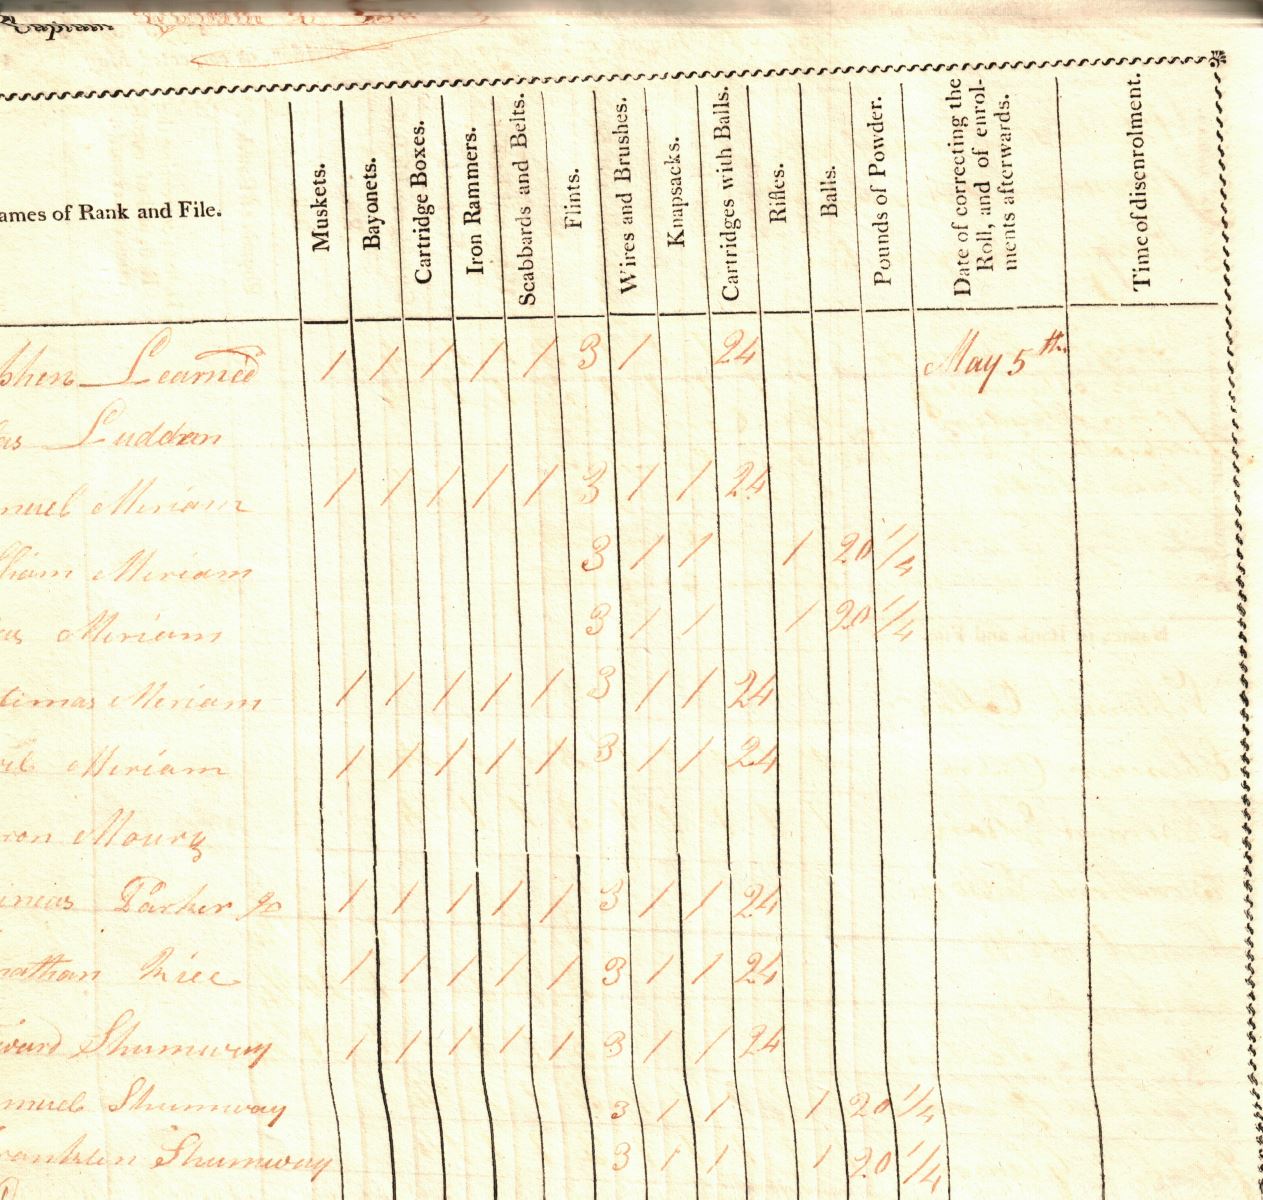 Captain
ames of Rank and File. Muskets. Bayonets. Cartridge Boxes. Iron Rammers. Scabbards and Belts. Flints. Wires and Brushes. Knapsacks. Cartridges with Balls. Rifles. Balls. Pounds of Powder. Date of correcting the Roll, and of enrol-ments afterwards. Time of disenrolment.
phen Learned 1 1 1 1 1 3 1 24 May 5th
as Luddan
muel Meriam 1 1 1 1 1 3 1 1 24
liam Meriam 3 1 1 1 20 1/4
as Meriam 3 1 1 1 20 1/4
timas Meriam 1 1 1 1 1 3 1 1 24
el Meriam 1 1 1 1 1 3 1 1 24
ron Moury
ineas Parker Jr 1 1 1 1 1 3 1 1 24
nathan Rice 1 1 1 1 1 3 1 1 24
ward Shumway 1 1 1 1 1 3 1 1 24
muel Shumway 3 1 1 1 20 1/4
ranklin Shumway 3 1 1 1 20 1/4